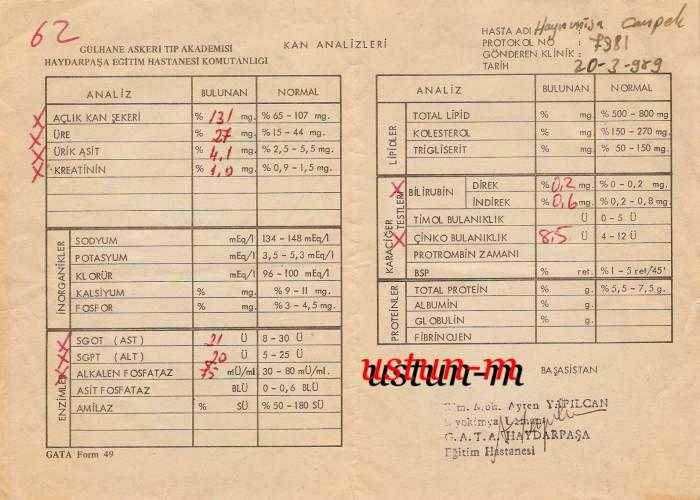 62
GÜLHANE ASKERİ TIP AKADEMİSİ
HAYDARPAŞA EĞİTİM HASTANESİ KOMUTANLIĞI
KAN ANALİZLERİ
HASTA ADI
PROTOKOL NO : 7981
GÖNDEREN KLİNİK :
TARİH 20-3-989
ANALİZ BULUNAN NORMAL
x AÇLIK KAN ŞEKERİ % 131 mg. % 65 - 107 mg.
x ÜRE % 27 mg. % 15 - 44 mg.
x ÜRİK ASİT % 4,1 mg. % 2,5 - 5,5 mg.
x KREATİNİN % 1,0 mg. % 0,9 - 1,5 mg.
İNORGANİKLER
SODYUM mEq/l 134 - 148 mEq/l
POTASYUM mEq/l 3,5 - 5,3 mEq/l
KLORÜR mEq/l 96 - 100 mEq/l
KALSİYUM % mg. % 9 - 11 mg.
FOSFOR % mg. % 3 - 4,5 mg.
ENZİMLER
x SGOT (AST) 21 Ü 8 - 30 Ü
x SGPT (ALT) 20 Ü 5 - 25 Ü
x ALKALEN FOSFATAZ 75 mÜ/ml. 30 - 80 mÜ/ml.
ASİT FOSFATAZ BLÜ 0 - 0,6 BLÜ
AMİLAZ % SÜ % 50 - 180 SÜ
GATA Form 49
ANALİZ BULUNAN NORMAL
LİPİDLER
TOTAL LİPİD % mg % 500 - 800 mg
KOLESTEROL % mg. % 150 - 270 mg.
TRİGLİSERİT % mg. % 50 - 150 mg.
KARACİĞER TESTLERİ
x BİLİRUBİN DİREK % 0,2 mg. % 0 - 0,2 mg.
İNDİREK % 0,6 mg. % 0,2 - 0,8 mg.
TİMOL BULANIKLIK Ü 0 - 5 Ü
x ÇİNKO BULANIKLIK 8,5 Ü 4 - 12 Ü
PROTROMBİN ZAMANI
BSP % ret. % 1 - 5 ret/45'
PROTEİNLER
TOTAL PROTEİN % g. % 5,5 - 7,5 g.
ALBUMİN % g.
GLOBULİN % g.
FİBRİNOJEN
ustun-m
BAŞASİSTAN
Ayten YAPILCAN
G.A.T.A. HAYDARPAŞA
Eğitim Hastanesi